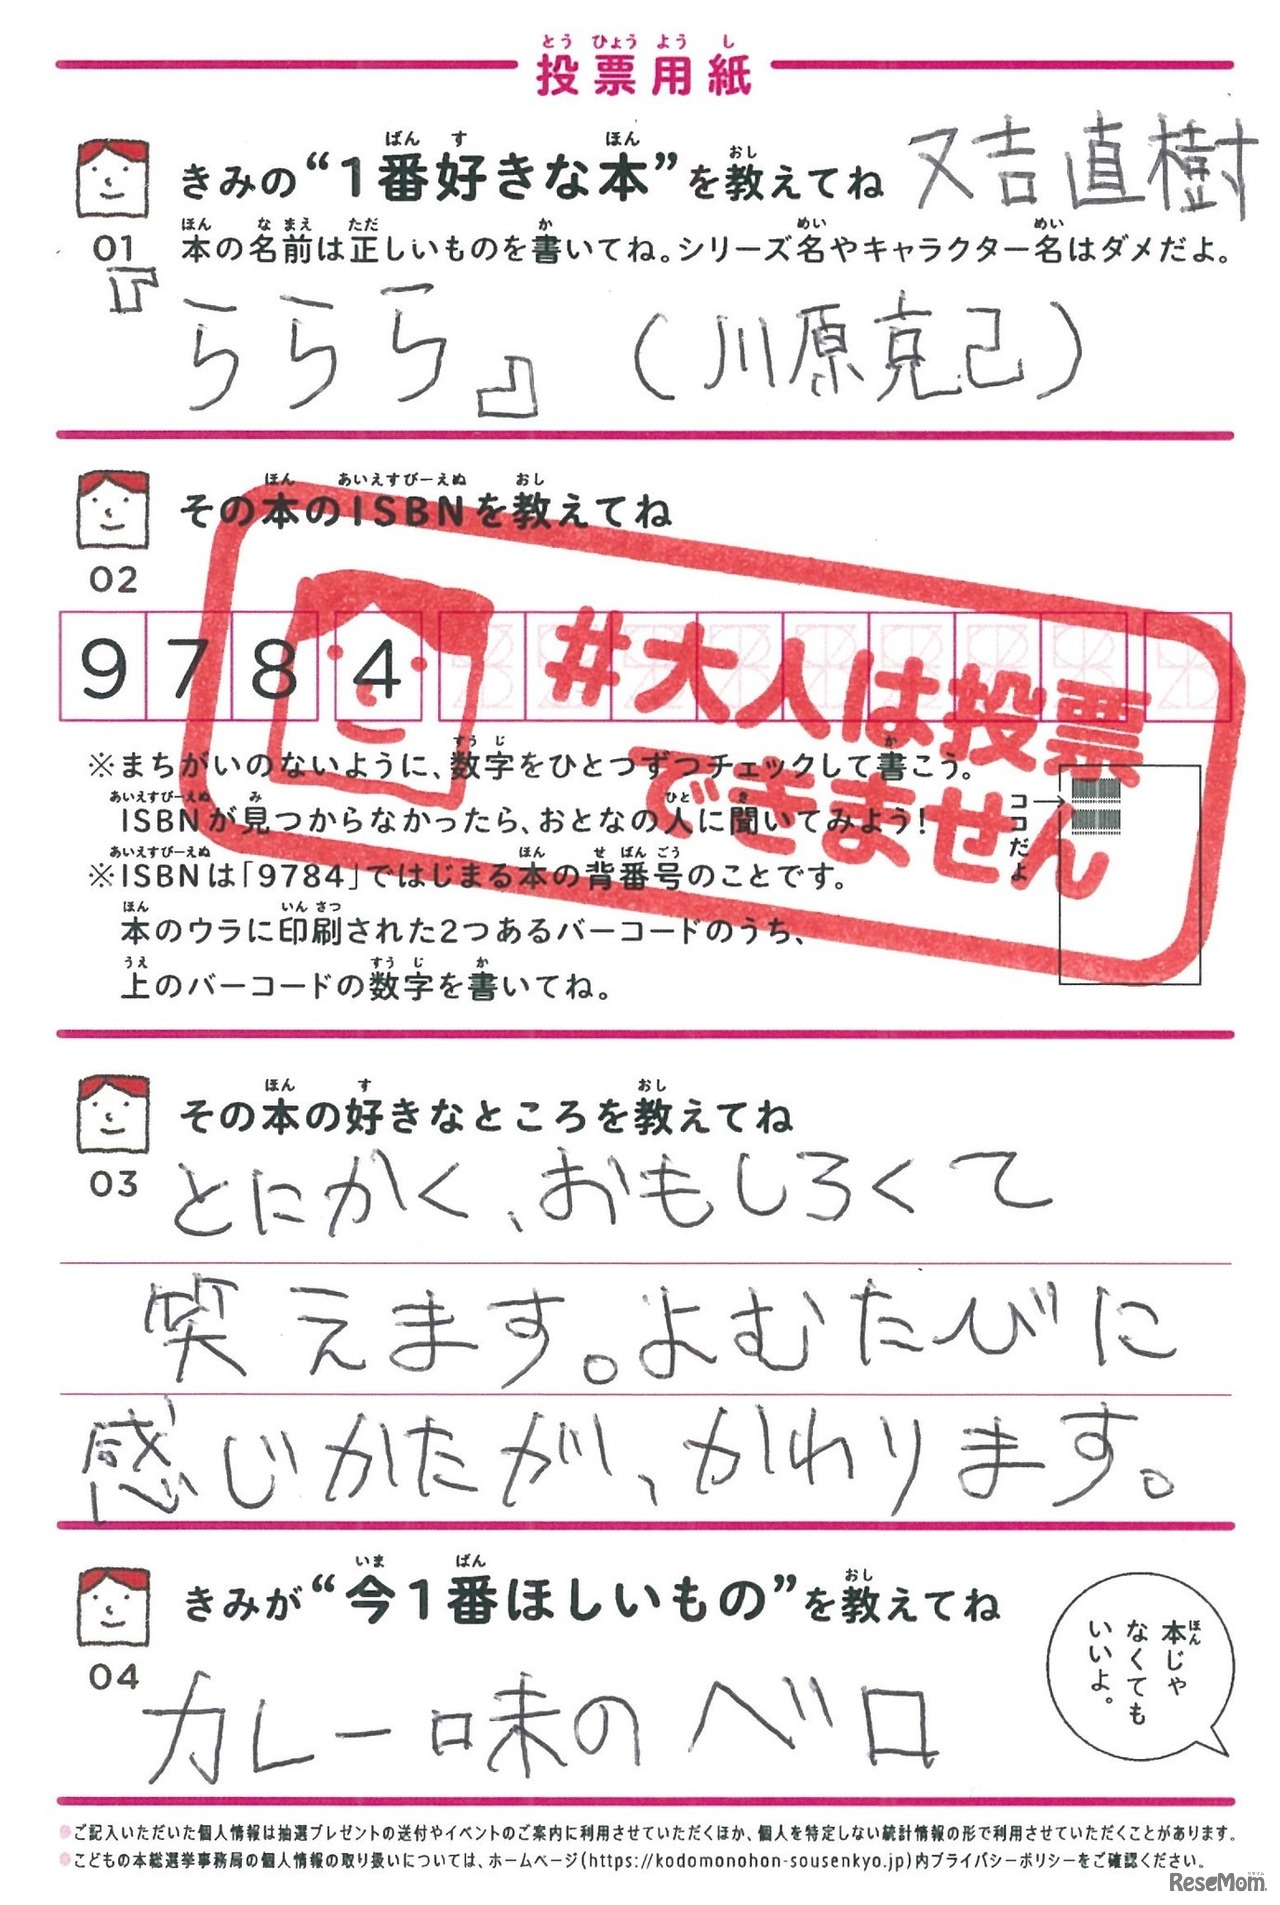 とう ひょう よう し
投票用紙
ばん す ほん おし
きみの“1番好きな本”を教えてね
又吉直樹
01
ほん な まえ ただ か めい めい
本の名前は正しいものを書いてね。シリーズ名やキャラクター名はダメだよ。
『ららら』(川原克己)
ほん あいえすびーえぬ おし
その本のISBNを教えてね
02
9784
#大人は投票
できません
すう じ か
※まちがいのないように、数字をひとつずつチェックして書こう。
あいえすびーえぬ み ひと き
ISBNが見つからなかったら、おとなの人に聞いてみよう!
ココだよ
あいえすびーえぬ ほん せ ばん ごう
※ISBNは「9784」ではじまる本の背番号のことです。
ほん いん さつ
本のウラに印刷された2つあるバーコードのうち、
うえ すう じ か
上のバーコードの数字を書いてね。
ほん す おし
その本の好きなところを教えてね
03
とにかく、おもしろくて
笑えます。よむたびに
感じかたが、かわります。
いま ばん おし
きみが“今1番ほしいもの”を教えてね
04
ほん
本じゃ
なくても
いいよ。
カレー味のベロ
●ご記入いただいた個人情報は抽選プレゼントの送付やイベントのご案内に利用させていただくほか、個人を特定しない統計情報の形で利用させていただくことがあります。
●こどもの本総選挙事務局の個人情報の取り扱いについては、ホームページ(https://kodomonohon-sousenkyo.jp)内プライバシーポリシーをご確認ください。
ReseMom